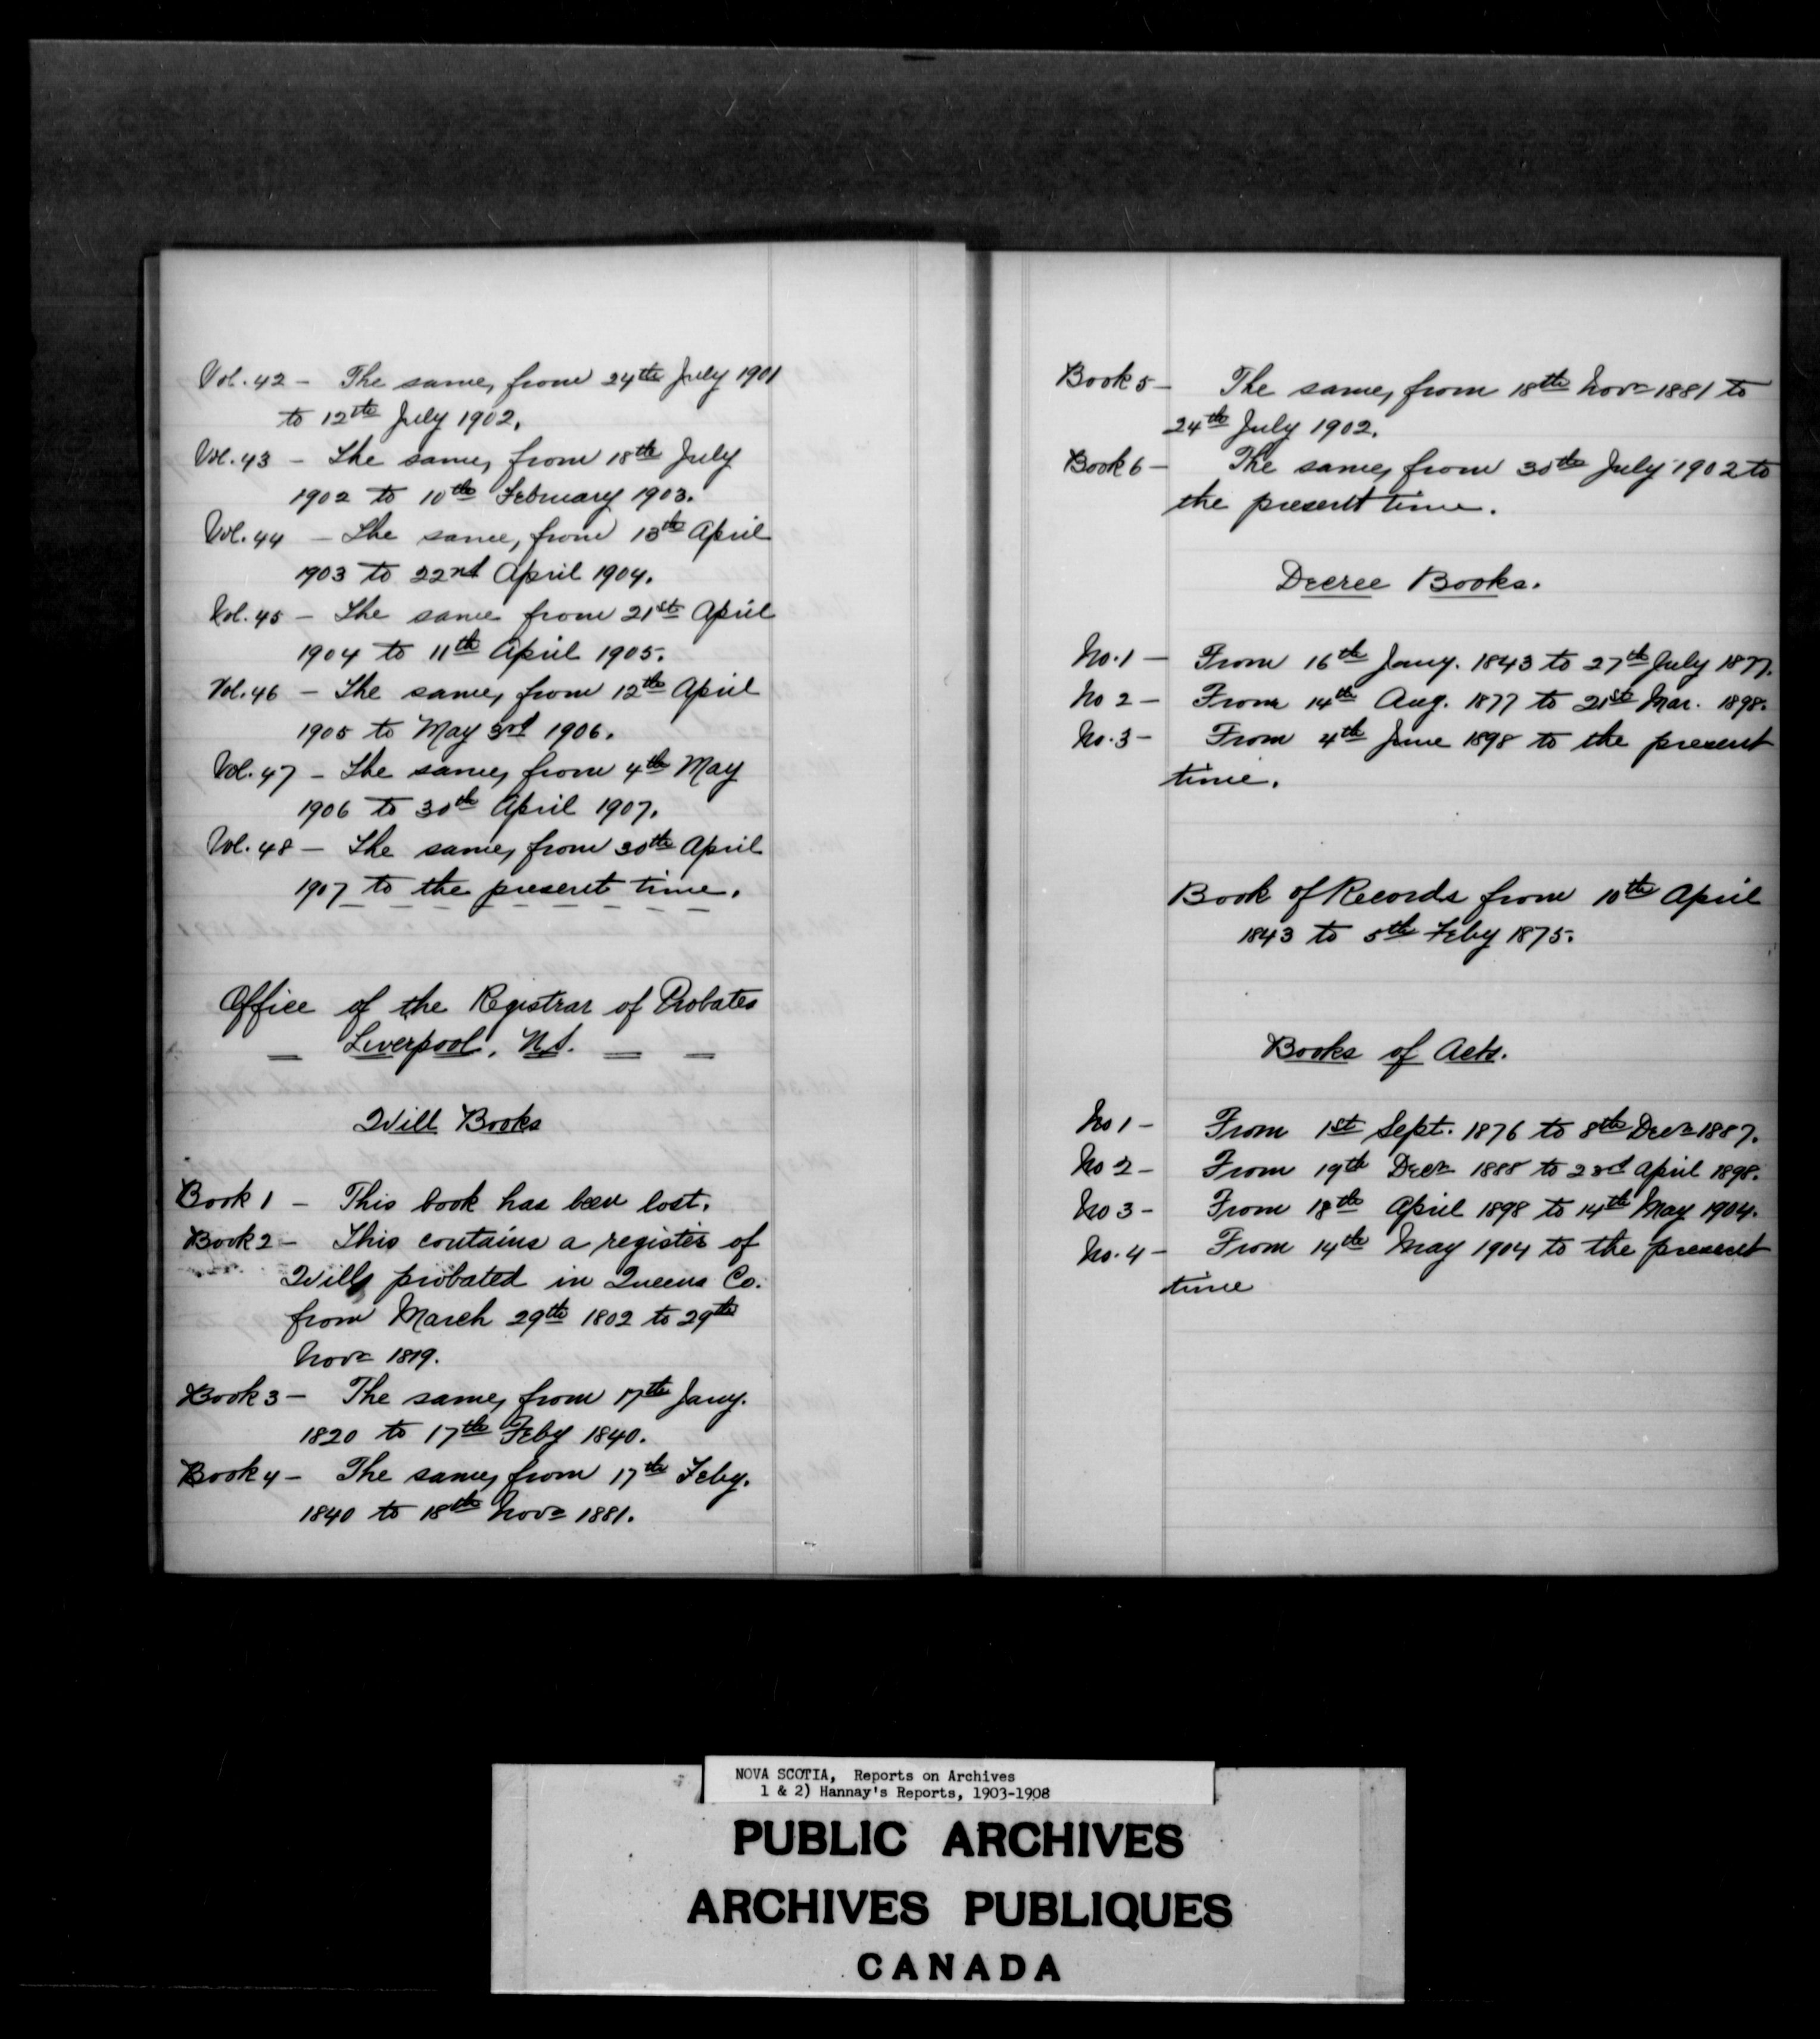 Vol. 42 – The same, from 24th July 1901
to 12th July 1902.
Vol. 43 – The same, from 18th July
1902 to 10th February 1903.
Vol. 44 – The same, from 13th April
1903 to 22nd April 1904.
Vol. 45 – The same from 21st April
1904 to 11th April 1905.
Vol. 46 – The same, from 12th April
1905 to May 3rd 1906.
Vol. 47 – The same, from 4th May
1906 to 30th April 1907.
Vol. 48 – The same, from 30th April
1907 to the present time.
Office of the Registrar of Probates
Liverpool, N.S.
Will Books
Book 1 – This book has been lost.
Book 2 – This contains a register of
Wills probated in Queens Co.
from March 29th 1802 to 29th
Novr 1819.
Book 3 – The same, from 17th Jany.
1820 to 17th Feby 1840.
Book 4 – The same, from 17th Feby.
1840 to 18th Novr 1881.
Book 5 – The same, from 18th Novr 1881 to
24th July 1902.
Book 6 – The same, from 30th July 1902 to
the present time.
Decree Books.
No. 1 – From 16th Jany. 1843 to 27th July 1877.
No 2 – From 14th Aug. 1877 to 21st Mar. 1898.
No. 3 – From 4th June 1898 to the present
time.
Book of Records from 10th April
1843 to 5th Feby 1875.
Books of Acts.
No 1 – From 1st Sept. 1876 to 8th Decr 1887.
No 2 – From 19th Decr 1888 to 23rd April 1898.
No 3 – From 18th April 1898 to 14th May 1904.
No. 4 – From 14th May 1904 to the present
time
NOVA SCOTIA, Reports on Archives
1 & 2) Hannay's Reports, 1903-1908
PUBLIC ARCHIVES
ARCHIVES PUBLIQUES
CANADA